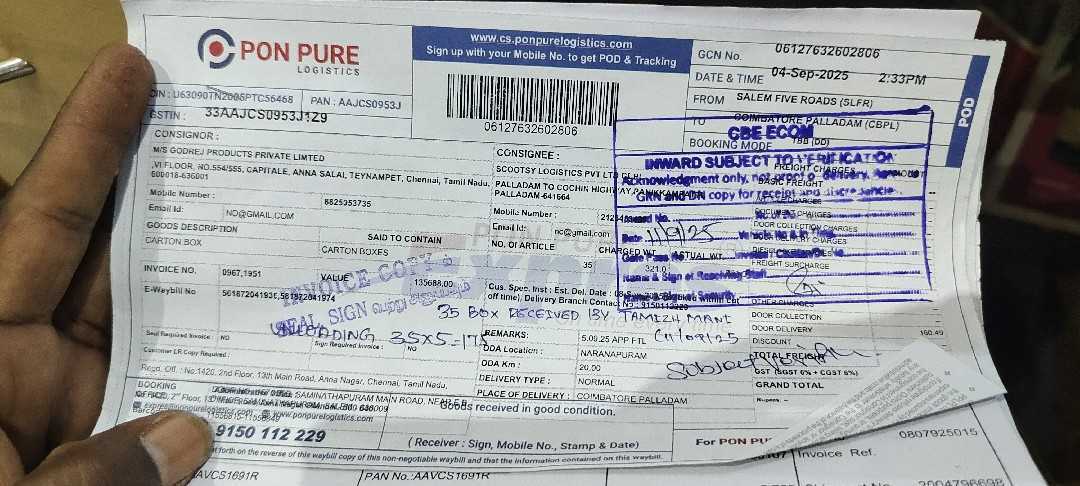 PON PURE
LOGISTICS
www.cs.ponpurelogistics.com
Sign up with your Mobile No. to get POD & Tracking
06127632602806
GCN No. 06127632602806
DATE & TIME 04-Sep-2025 2:33PM
FROM SALEM FIVE ROADS (SLFR)
TO COIMBATORE PALLADAM (CBPL)
BOOKING MODE TBB (DD)
POD
CIN : U63090TN2005PTC56468 PAN : AAJCS0953J
GSTIN : 33AAJCS0953J1Z9
CONSIGNOR :
M/S GODREJ PRODUCTS PRIVATE LIMTED
,VI FLOOR, NO.554/555, CAPITALE, ANNA SALAI, TEYNAMPET, Chennai, Tamil Nadu,
600018-636001
Mobile Number : 8825953735
Email Id: NO@GMAIL.COM
CONSIGNEE :
SCOOTSY LOGISTICS PVT LTD
PALLADAM TO COCHIN HIGHWAY,
PALLADAM-641664
Mobile Number :
Email Id: nc@gmail.com
CBE ECOM
INWARD SUBJECT TO VERIFICATION
Acknowledgment only, not proof of delivery,
GRN and DN copy for receipt and discrepancies
Inward No.
Date 11/9/25 Vehicle No & In Time
Name & Sign of Receiving Staff
FREIGHT CHARGES
BASIC FREIGHT
DOCUMENT CHARGES
DOOR COLLECTION CHARGES
FREIGHT SURCHARGE
OTHER CHARGES
DOOR COLLECTION
DOOR DELIVERY 160.49
DISCOUNT
TOTAL FREIGHT
GST (SGST 6% + CGST 6%)
GRAND TOTAL
Rupees: --
GOODS DESCRIPTION SAID TO CONTAIN NO. OF ARTICLE CHARGED WT. ACTUAL WT.
CARTON BOX CARTON BOXES 35 321.0
INVOICE NO. 0967,1951 VALUE 135688.00
E-Waybill No 561872041936,561872041974
INVOICE COPY &
SEAL SIGN
Cus. Spec. Inst : Est. Del. Date :
off time), Delivery Branch Contact No : 9150112229
35 BOX RECEIVED BY TAMIZH MANI
11/09/25
UNLOADING 35X5=175
Seal Required Invoice : NO Sign Required Invoice : NO
Customer LR Copy Required :
REMARKS: 5.09.25 APP FTL
ODA Location : NARANAPURAM
ODA Km : 20.00
DELIVERY TYPE : NORMAL
PLACE OF DELIVERY : COIMBATORE PALLADAM
Regd. Off : No.1420, 2nd Floor, 13th Main Road, Anna Nagar, Chennai, Tamil Nadu,
BOOKING
OFFICE:
www.ponpurelogistics.com
9150 112 229
Goods received in good condition.
(Receiver : Sign, Mobile No., Stamp & Date)
For PON PU
forth on the reverse of this waybill copy of this non-negotiable waybill and that the information contained on this waybill.
AAVCS1691R PAN No.:AAVCS1691R
0807925015
Invoice Ref.
2004796698